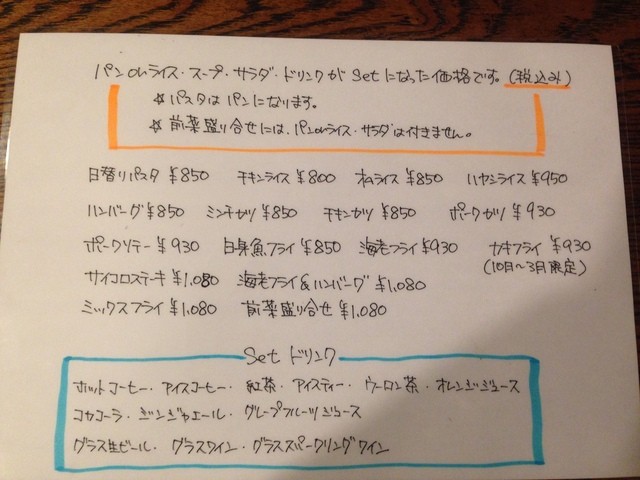 パンorライス・スープ・サラダ・ドリンクが Setになった価格です。(税込み)
☆ パスタは パンになります。
☆ 前菜盛り合せには、パンorライス・サラダは付きません。
日替りパスタ ¥850 チキンライス ¥800 オムライス ¥850 ハヤシライス ¥950
ハンバーグ ¥850 ミンチカツ ¥850 チキンカツ ¥850 ポークカツ ¥930
ポークソテー ¥930 白身魚フライ ¥850 海老フライ ¥930 カキフライ ¥930
(10月〜3月限定)
サイコロステーキ ¥1,080 海老フライ&ハンバーグ ¥1,080
ミックスフライ ¥1,080 前菜盛り合せ ¥1,080
Set ドリンク
ホットコーヒー・アイスコーヒー・紅茶・アイスティー・ウーロン茶・オレンジジュース
コカコーラ・ジンジャエール・グレープフルーツジュース
グラス生ビール・グラスワイン・グラススパークリングワイン